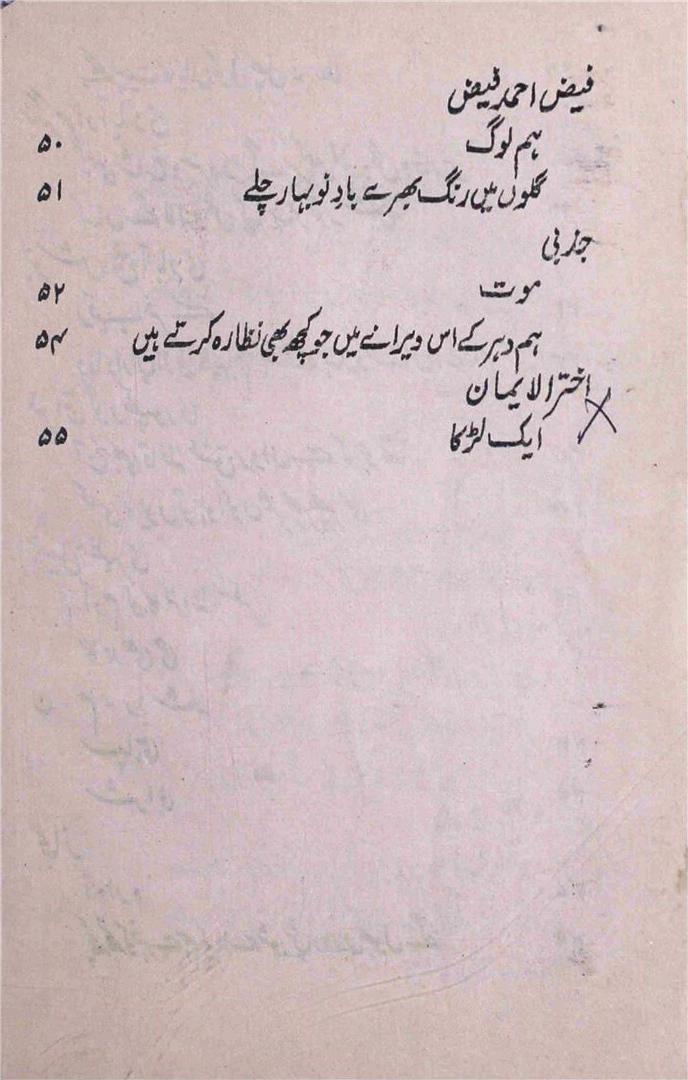 فیض احمد فیض
ہم لوگ ۵۰
گلوں میں رنگ بھرے بادِ نو بہار چلے ۵۱
جذبی
موت ۵۲
ہم دہر کے اس ویرانے میں جو کچھ بھی نظارہ کرتے ہیں ۵۴
اختر الایمان
ایک لڑکا ۵۵